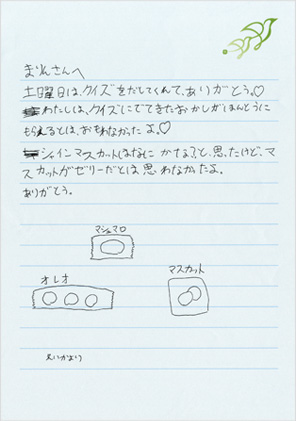 まれさんへ
土曜日は、クイズをだしてくれて、ありがとう。♡
わたしは、クイズにでてきたおかしがほんとうに
もらえるとは、おもわなかったよ♡
シャインマスカットはなにかな?と、思ったけど、マ
スカットがゼリーだとは思わなかったよ。
ありがとう。
マシュマロ
オレオ
マスカット